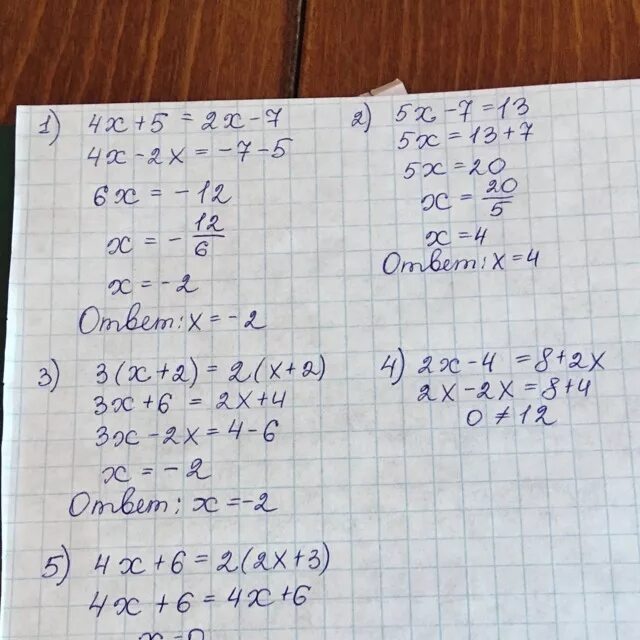 1) 4x + 5 = 2x - 7
4x - 2x = -7 - 5
6x = -12
x = - 12/6
x = -2
Ответ: x = -2
2) 5x - 7 = 13
5x = 13 + 7
5x = 20
x = 20/5
x = 4
Ответ: x = 4
3) 3(x + 2) = 2(x + 2)
3x + 6 = 2x + 4
3x - 2x = 4 - 6
x = -2
Ответ: x = -2
4) 2x - 4 = 8 + 2x
2x - 2x = 8 + 4
0 ≠ 12
5) 4x + 6 = 2(2x + 3)
4x + 6 = 4x + 6